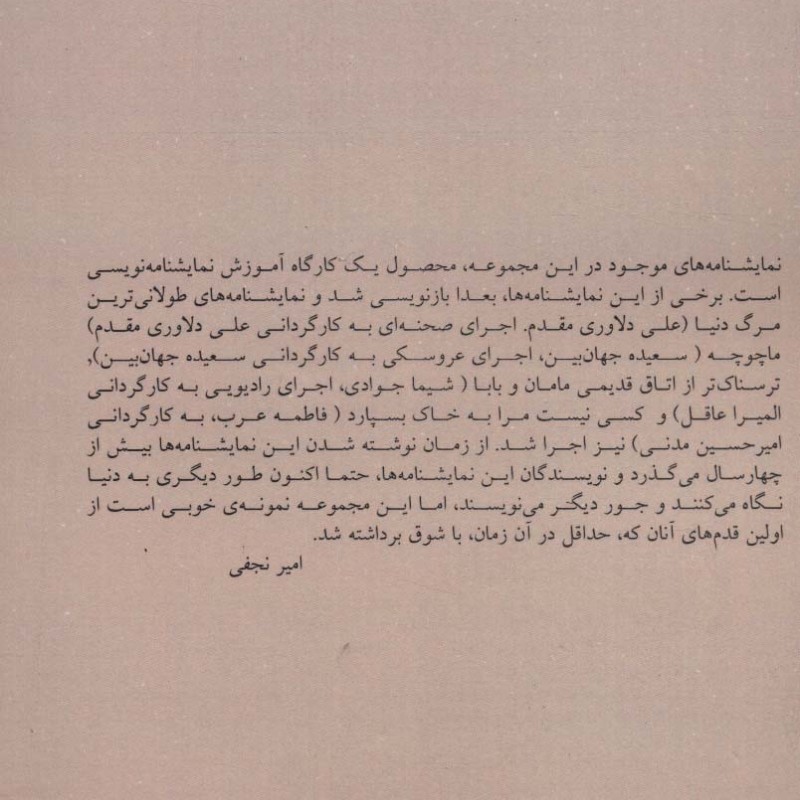 نمایشنامه‌های موجود در این مجموعه، محصول یک کارگاه آموزش نمایشنامه‌نویسی
است. برخی از این نمایشنامه‌ها، بعدا بازنویسی شد و نمایشنامه‌های طولانی‌ترین
مرگ دنیا (علی دلاوری مقدم. اجرای صحنه‌ای به کارگردانی علی دلاوری مقدم)
ماچوچه ( سعیده جهان‌بین، اجرای عروسکی به کارگردانی سعیده جهان‌بین),
ترسناک‌تر از اتاق قدیمی مامان و بابا ( شیما جوادی، اجرای رادیویی به کارگردانی
المیرا عاقل) و کسی نیست مرا به خاک بسپارد ( فاطمه عرب، به کارگردانی
امیرحسین مدنی) نیز اجرا شد. از زمان نوشته شدن این نمایشنامه‌ها بیش از
چهارسال می‌گذرد و نویسندگان این نمایشنامه‌ها، حتما اکنون طور دیگری به دنیا
نگاه می‌کنند و جور دیگر می‌نویسند، اما این مجموعه نمونه‌ی خوبی است از
اولین قدم‌های آنان که، حداقل در آن زمان، با شوق برداشته شد.
امیر نجفی